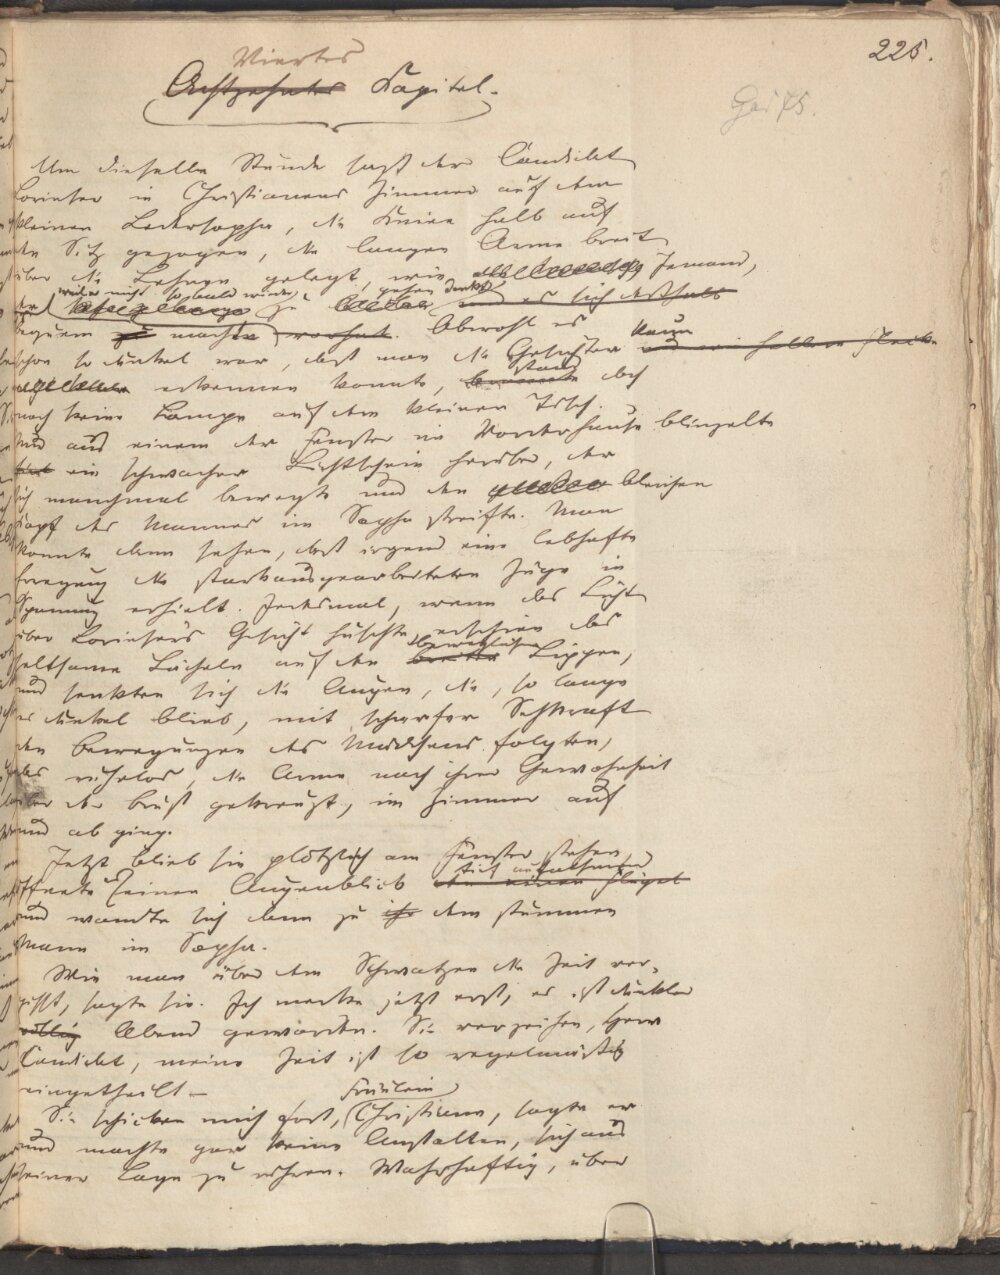 225.
Viertes
Achtzehntes Kapitel.
Um dieselbe Stunde saß der Candidat
Lorinser in Christianens Zimmer auf dem
kleinen Ledersopha, die Kniee halb auf
den Sitz gezogen, die langen Arme breit
über die Lehnen gelegt, wie Jemand,
der weder nicht so bald wieder zu gehen denkt es sich deßhalb
bequem zu machen. Obwohl es
schon so dunkel war, daß man die Gesichter kaum
erkennen konnte, stand doch
noch keine Lampe auf dem kleinen Tisch.
Nur aus einem der Fenster im Vorderhause blinzelte
ein schwacher Lichtschein herüber, der
sich manchmal bewegte und den bleichen
Kopf des Mannes im Sopha streifte. Man
konnte dann sehen, daß irgend eine lebhafte
Erregung die starkausgearbeiteten Züge in
Spannung erhielt. Jedesmal, wenn das Licht
über Lorinser's Gesicht huschte, erschien das
seltsame Lächeln auf den Lippen,
und senkten sich die Augen, die, so lange
es dunkel blieb, mit scharfer Sehkraft
den Bewegungen des Mädchens folgten,
das ruhelos, die Arme nach ihrer Gewohnheit
über der Brust gekreuzt, im Zimmer auf
und ab ging.
Jetzt blieb sie plötzlich am Fenster stehen,
öffnete einen Augenblick
und wandte sich dann zu dem stummen
Mann im Sopha.
Wie man über dem Schwatzen die Zeit ver-
gißt, sagte sie. Ich merke jetzt erst, es ist dunkler
völlig Abend geworden. Sie verzeihen, Herr
Candidat, meine Zeit ist so regelmäßig
eingetheilt –
Sie schicken mich fort, Fräulein Christiane, sagte er
und machte gar keine Anstalten, sich aus
seiner Lage zu rühren. Wahrhaftig, über